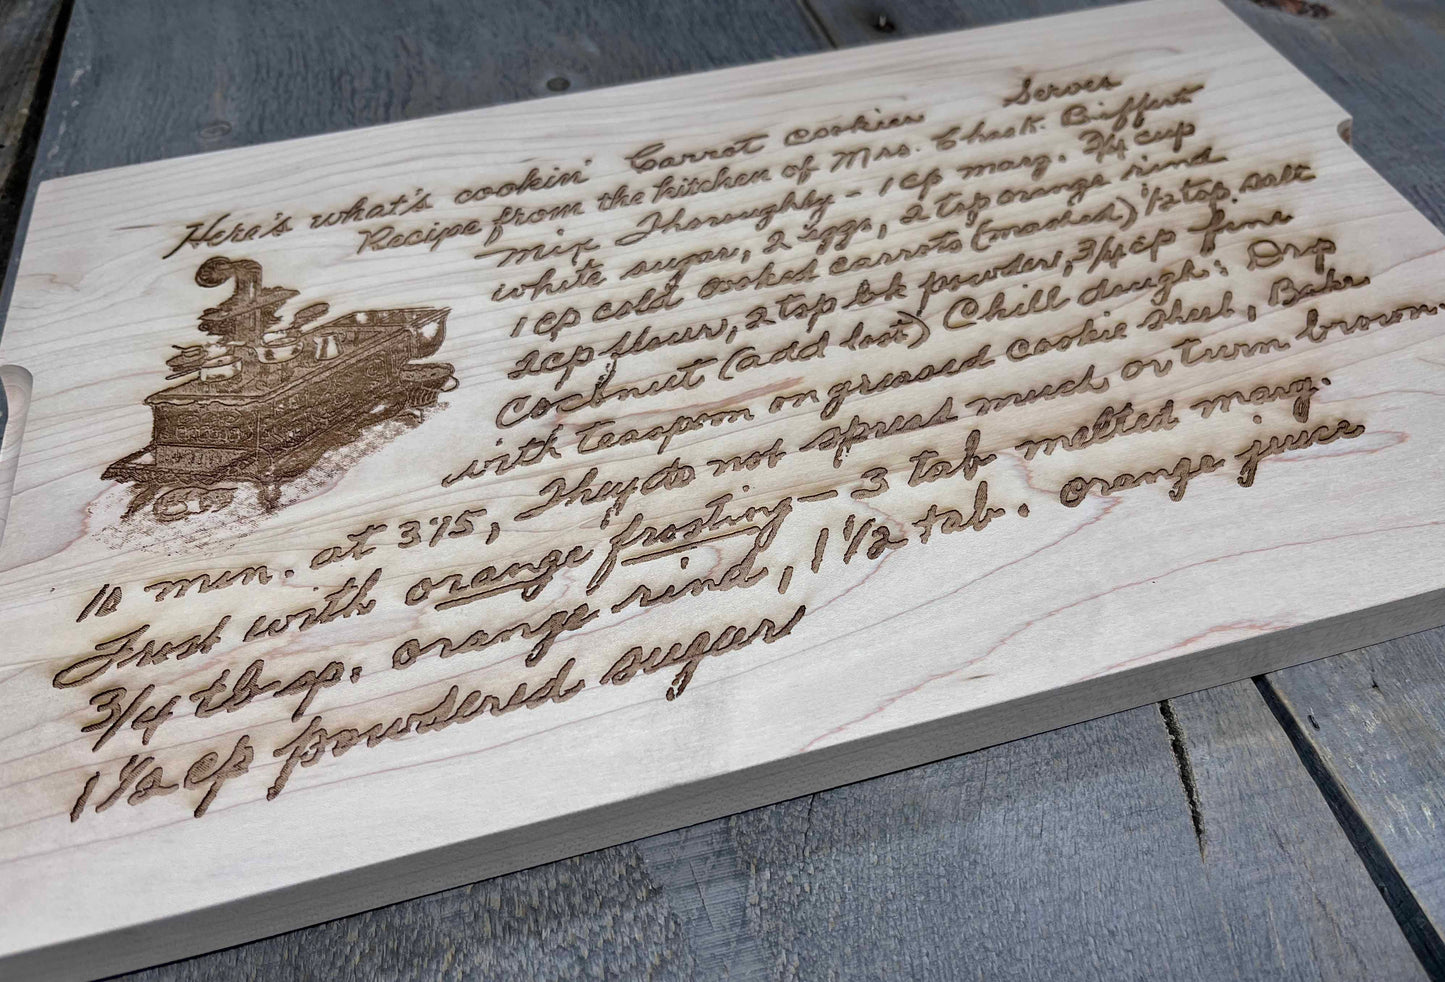 Here's what's cookin' Carrot Cookies Serves
Recipe from the kitchen of Mrs. Chask.
Mix Thoroughly - 1 cp marg. 3/4 cup
white sugar, 2 eggs, 2 tsp orange rind
1 cp cold cooked carrots (mashed) 1/2 tsp. salt
2 cp flour, 2 tsp bk powder, 3/4 cp fine
Coconut (add last) Chill dough: Drop
with teaspoon on greased cookie sheet, Bake
10 min. at 375, They do not spread much or turn brown.
Frost with orange frosting - 3 tab melted marg.
3/4 tbsp. orange rind, 1 1/2 tab. orange juice
1 1/2 cp powdered sugar